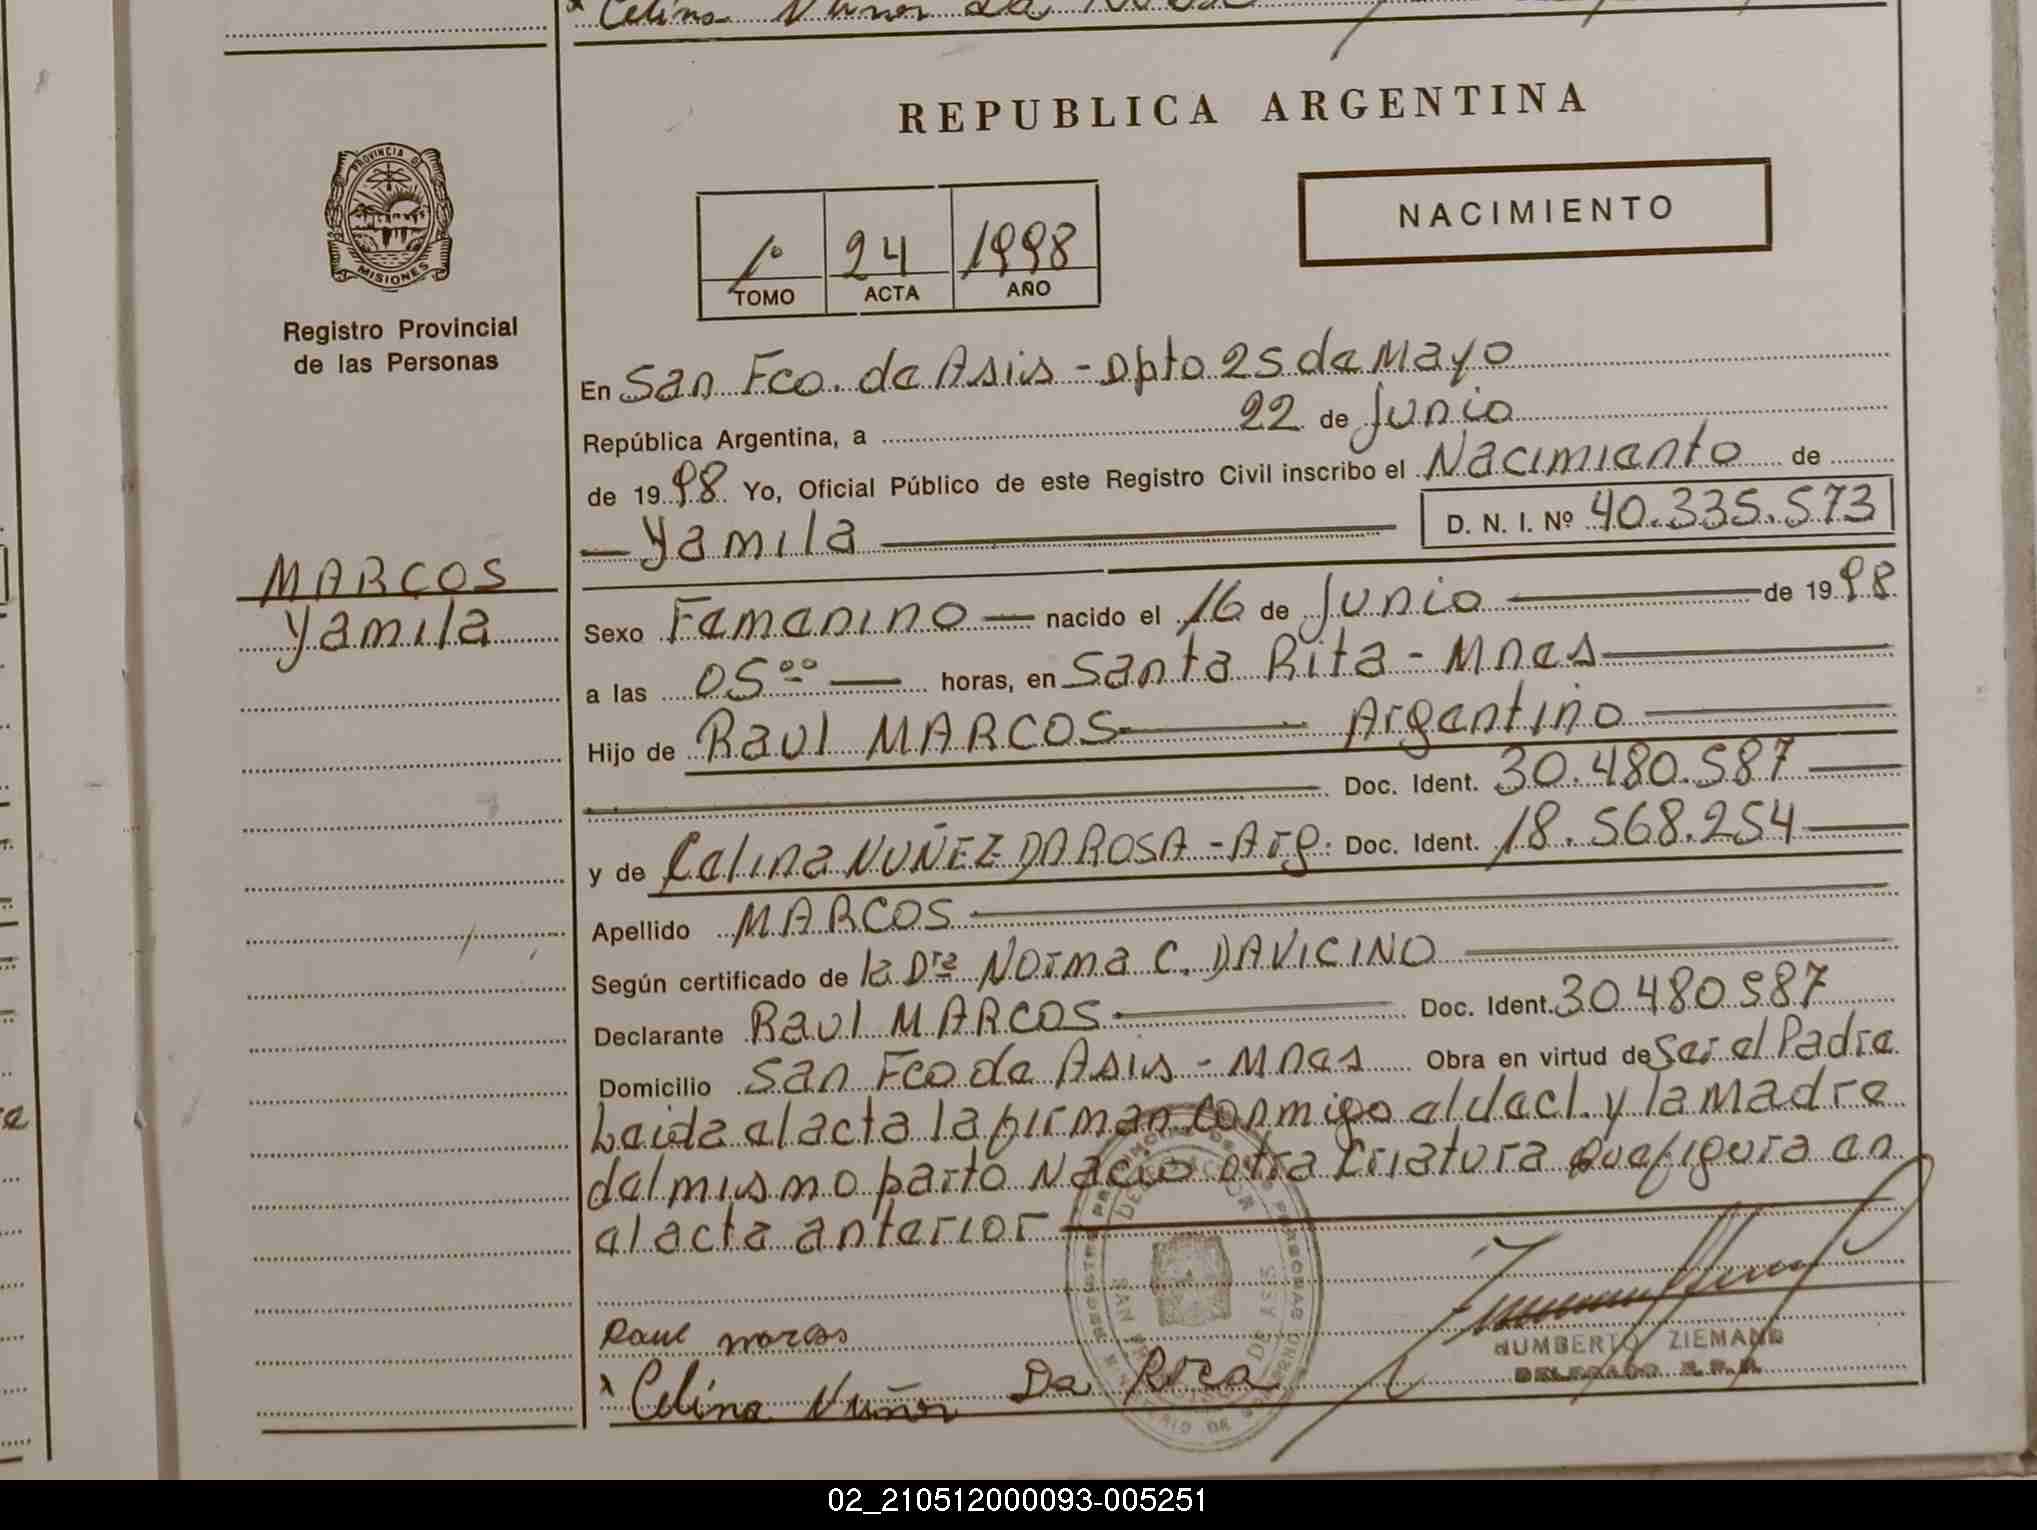 Celina Nuñez Da Rosa
REPUBLICA ARGENTINA
PROVINCIA DE
MISIONES
Registro Provincial
de las Personas
1º 24 1998
TOMO ACTA AÑO
NACIMIENTO
En San Fco. de Asis - Dpto 25 de Mayo
República Argentina, a 22 de Junio
de 1998 Yo, Oficial Público de este Registro Civil inscribo el Nacimiento de
Yamila D. N. I. Nº 40.335.573
MARCOS
Yamila
Sexo Femenino nacido el 16 de Junio de 1998
a las 05ºº horas, en Santa Rita - Mnes
Hijo de Raul MARCOS Argentino
Doc. Ident. 30.480.587
y de Celina NUÑEZ DA ROSA - Arg. Doc. Ident. 18.568.254
Apellido MARCOS
Según certificado de la Dra Norma C. DAVICINO
Declarante Raul MARCOS Doc. Ident. 30.480.587
Domicilio San Fco de Asis - Mnes Obra en virtud de Ser el Padre
Leida el acta la firman conmigo el decl. y la madre
del mismo parto Nacio otra criatura que figura en
el acta anterior
Raul marcos
HUMBERTO ZIEMANN
DELEGADO R.P.P.
x Celina Nuñez Da Roza
02_210512000093-005251